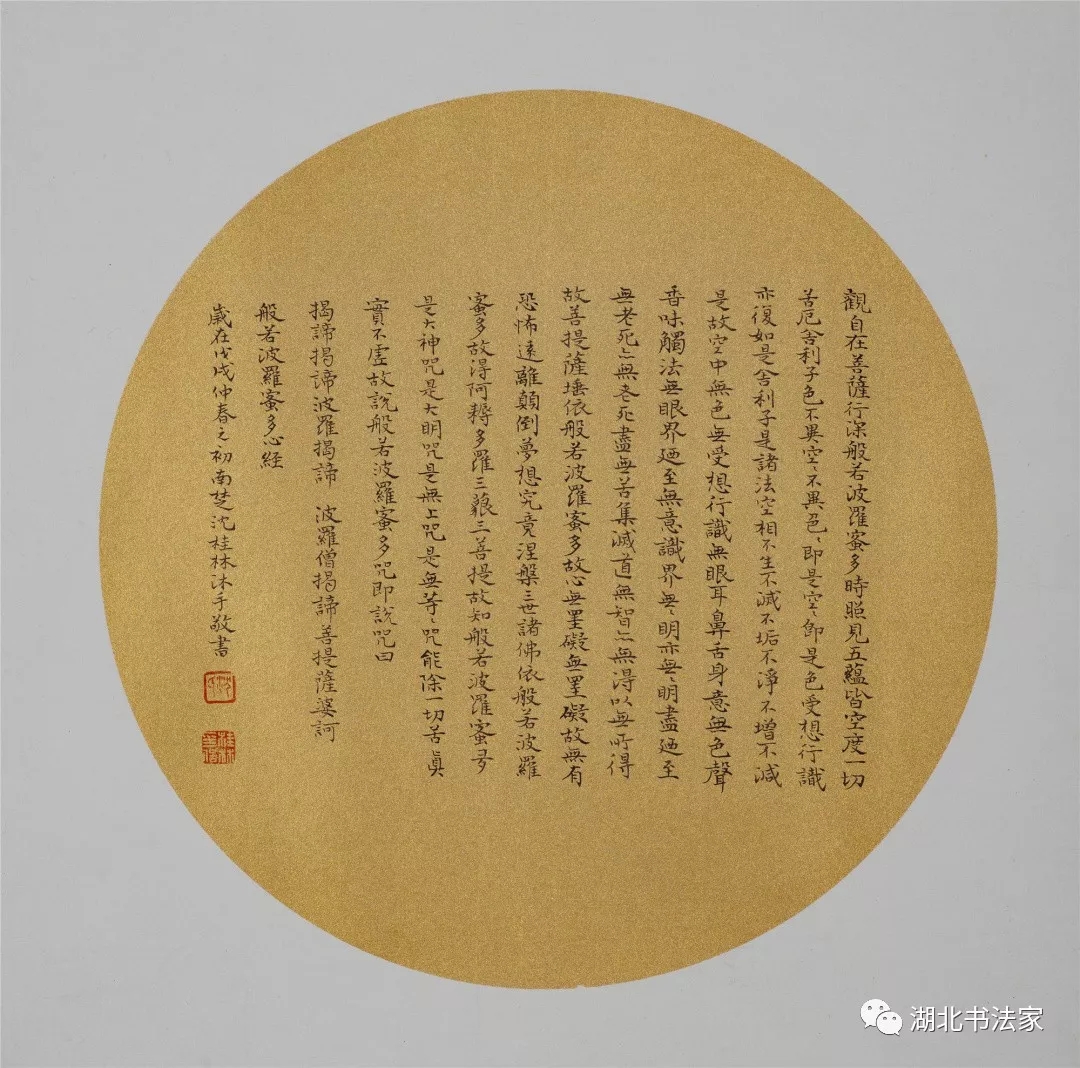 觀自在菩薩行深般若波羅蜜多時照見五蘊皆空度一切
苦厄舍利子色不異空〻不異色〻即是空〻即是色受想行識
亦復如是舍利子是諸法空相不生不滅不垢不淨不增不減
是故空中無色無受想行識無眼耳鼻舌身意無色聲
香味觸法無眼界廼至無意識界無〻明亦無〻明盡廼至
無老死亦無老死盡無苦集滅道無智亦無得以無所得
故菩提薩埵依般若波羅蜜多故心無罣礙無罣礙故無有
恐怖遠離顛倒夢想究竟涅槃三世諸佛依般若波羅
蜜多故得阿耨多羅三藐三菩提故知般若波羅蜜多
是大神咒是大明咒是無上咒是無等〻咒能除一切苦真
實不虛故說般若波羅蜜多咒即說咒曰
揭諦揭諦波羅揭諦 波羅僧揭諦菩提薩婆訶
般若波羅蜜多心經
歲在戊戌仲春之初南楚沈桂林沐手敬書
湖北书法家